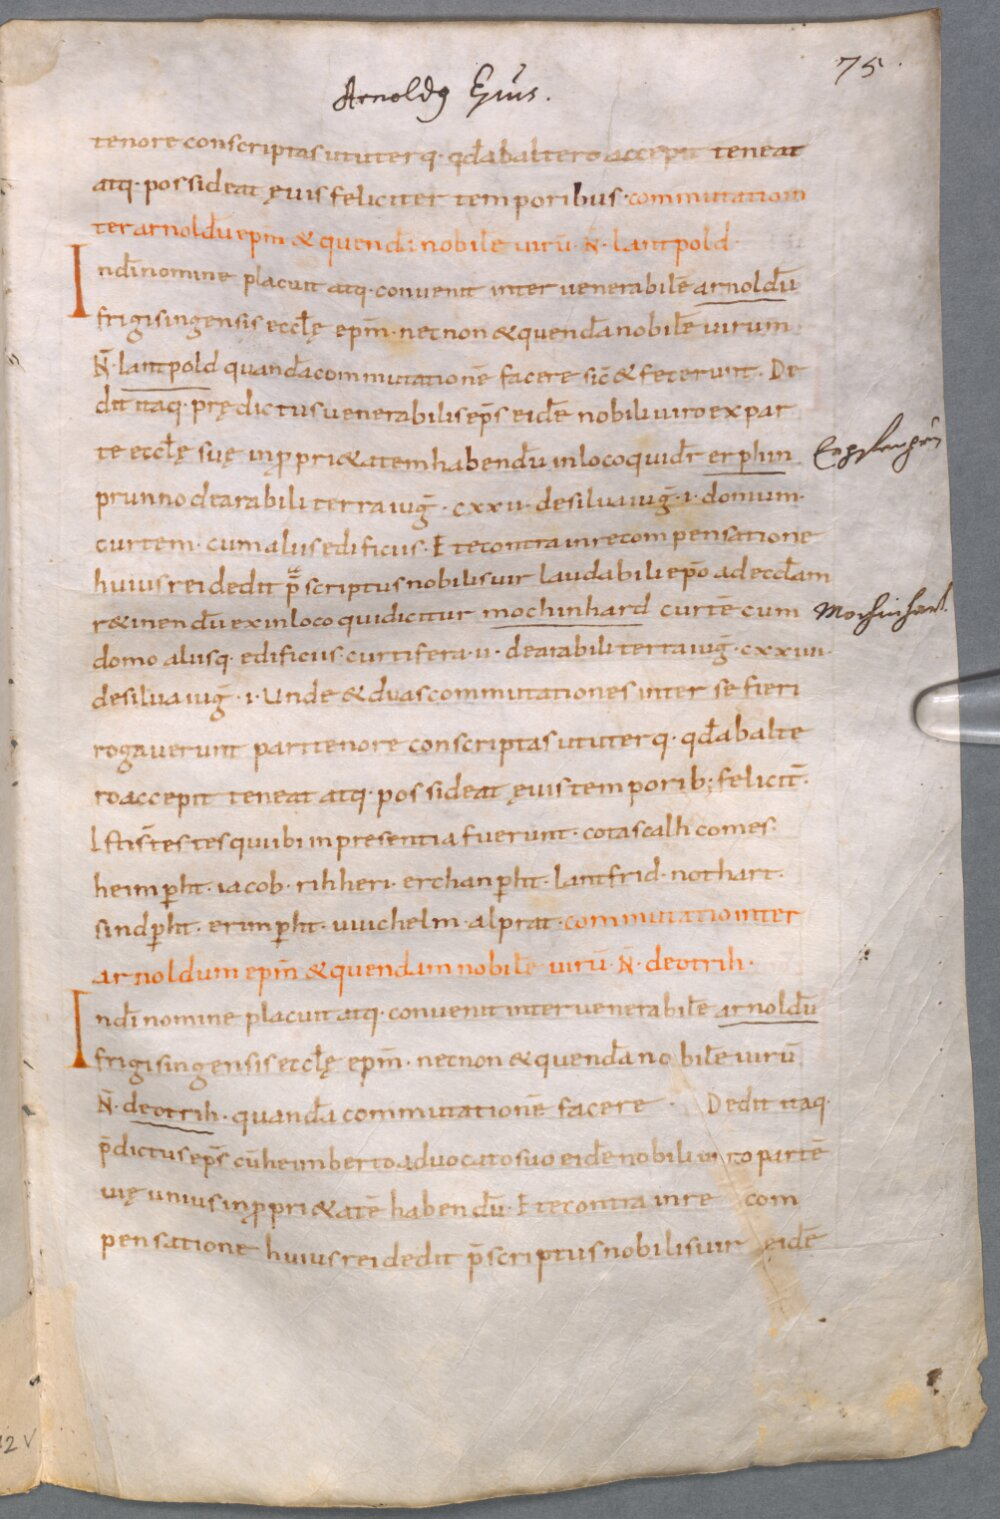 75.
Arnoldꝰ Epũs.
tenore conscriptas ut uterq· qđ ab altero accepit teneat
atq· possideat ęuis feliciter temporibus· commutatio in
ter arnoldũ epm̃ & quendã nobilẽ uirũ· Ñ· lantpold·
In dĩ nomine placuit atq· convenit inter venerabilẽ arnoldũ
frigisingensis eccłę epm̃· necnon & quendã nobilẽ uirum
Ñ· lantpold quandã commutationẽ facere sic̃ & fecerunt· De
dit itaq· prędictus venerabilis ep̃s eidẽ nobili uiro ex par
te eccłę suę in ꝓpri&atem habendũ in loco qui dr̃ erphin
prunno de arabili terra iug̃· cxxii· de silua iug̃· i· domum·
curtem· cum aliis edificiis· Et econtra in recompensatione
huius rei dedit p̃scriptus nobilis uir laudabili ep̃o ad eccłam
r&inendũ ex in loco qui dicitur mochinhard curtẽ cum
Mochinhart.
domo aliisq· edificiis curtifera· ii· de arabili terra iug̃· cxxiiii·
de silua iug̃· i· Unde & duas commutationes inter se fieri
rogaverunt pari tenore conscriptas ut uterq· qđ ab alte
ro accepit teneat atq· possideat ęuis temporib; felicit̃·
Isti st̃ testes qui ubi in presentia fuerunt· cotascalh comes·
heimp̱ht· iacob· rihheri· erchanp̱ht· lantfrid· nothart·
sindp̱ht· erimp̱ht· uuichelm· alprat· commutatio inter
arnoldum epm̃ & quendam nobilẽ uirũ· Ñ· deotrih·
In dĩ nomine placuit atq· convenit inter venerabilẽ arnoldũ
frigisingensis eccłę epm̃· necnon & quendã nobilẽ uirũ
Ñ· deotrih· quandã commutationẽ facere· Dedit itaq·
p̃dictus ep̃s cũ heimberto advocato suo eidẽ nobili uiro partẽ
uię unius in ꝓpri&atẽ habendũ· Et econtra in re com
pensatione huius rei dedit p̃scriptus nobilis uir eidẽ